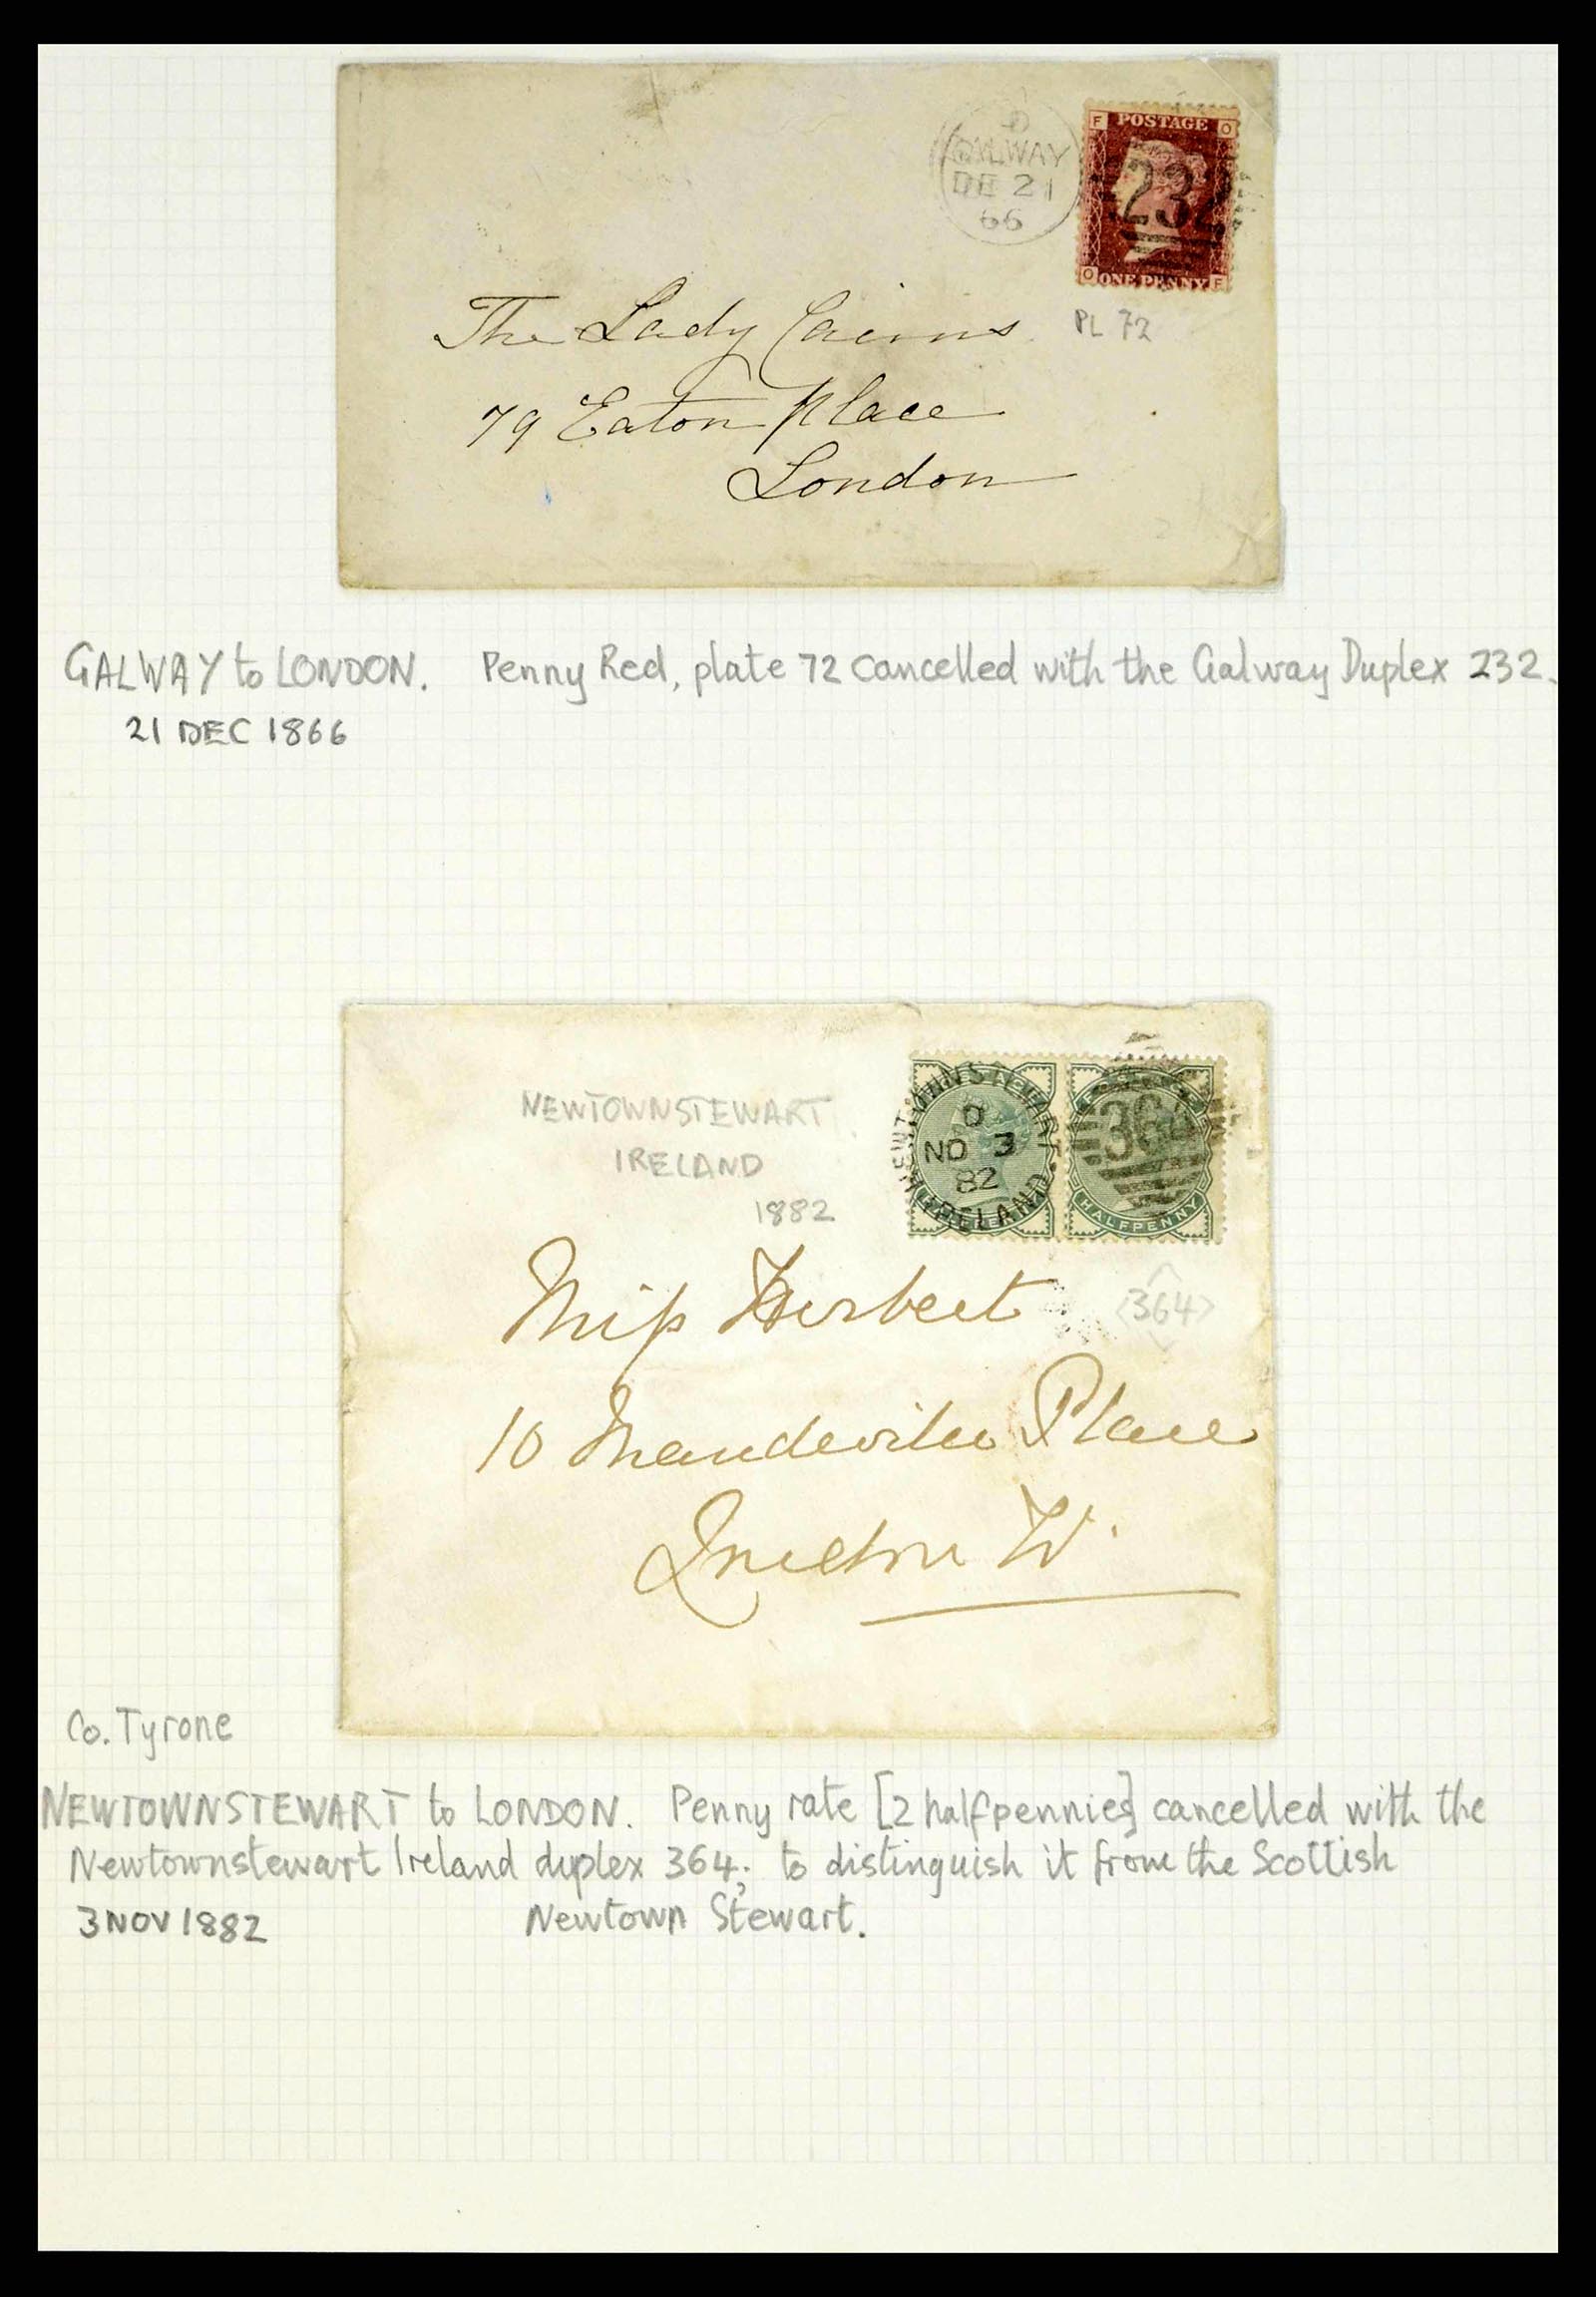 D
GALWAY
DE 21
66
F POSTAGE O
232
O ONE PENNY F
PL 72
The Lady Cairns
79 Eaton Place
London
GALWAY to LONDON. Penny Red, plate 72 cancelled with the Galway Duplex 232.
21 DEC 1866
NEWTOWNSTEWART
IRELAND
1882
NEWTOWNSTEWART
D
NO 3
82
IRELAND
364
HALFPENNY
<364>
Miss Herbert
10 Mandeville Place
London W.
Co. Tyrone
NEWTOWNSTEWART to LONDON. Penny rate [2 halfpennies] cancelled with the
Newtownstewart Ireland duplex 364; to distinguish it from the Scottish
3 NOV 1882 Newtown Stewart.